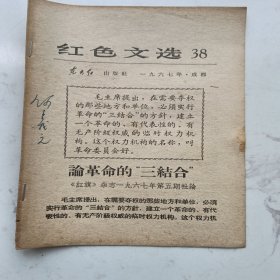 红色文选 38
东方红 出版社 一九六七年·成都
毛主席提出，在需要夺权
的那些地方和单位，必须实行
革命的“三结合”的方針，建立
一个革命的、有代表性的、有
无产阶級权威的临时权力机
构。这个权力机构的名称，叫
革命委员会好。
論革命的“三結合”
《紅旗》杂志一九六七年第五期社論
毛主席提出，在需要夺权的那些地方和单位，必须
实行革命的“三結合”的方針，建立一个革命的、有代
表性的、有无产阶級权威的临时权力机构。这个权力机